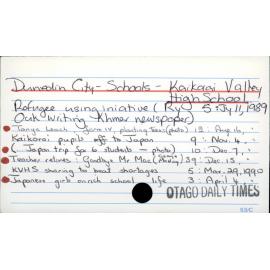 Dunedin City - Schools - Kaikorai Valley
High School
Refugee using iniative (Ryō 5: Jy 11, 1989
Ouk writing Khmer newspaper)
Tanya Leach form IV, planting trees (photo) 12: Aug. 16,
Kaikorai pupils off to Japan 9: Nov. 4,
(Japan trip for 6 students - photo) 10: Dec. 7,
Teacher retires: Goodbye Mr Mac 39: Dec. 15,
KVHS sharing to beat shortages 5: Mar. 29, 1990
Japanese girls enrich school life 3: April 4,
OTAGO DAILY TIMES